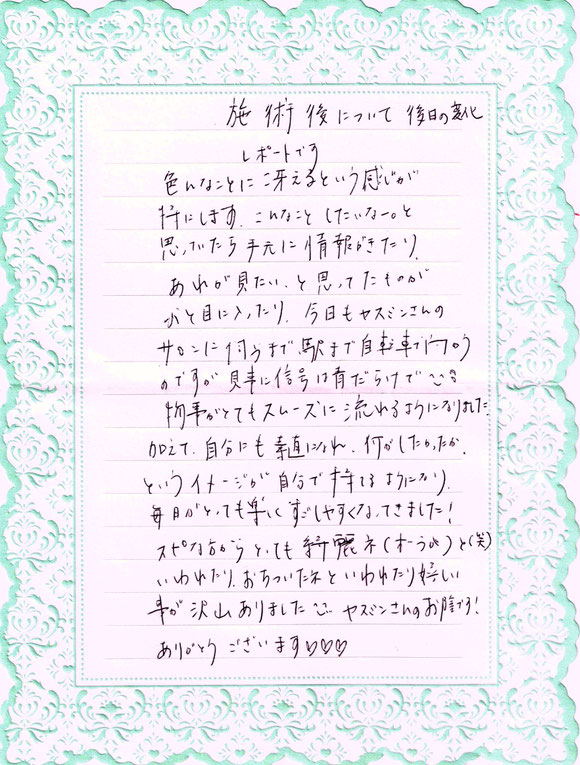 施術後について 後日の変化
レポートです
色んなことに冴えるという感じが
特にします。こんなことしたいなー。と
思っていたら手元に情報がきたり、
あれが見たい、と思ってたものが
ふと目に入ったり、今日もヤスミンさんの
サロンに伺うまで、駅まで自転車で向かう
のですが見事に信号は青だらけで
物事がとてもスムーズに流れるようになりました
加えて、自分にも素直になれ、何がしたかったか、
というイメージが自分で持てるようになり、
毎日がとっても楽しくすごしやすくなってきました!
スピな方からとっても綺麗ネ(オーラが)と(笑)
いわれたり、おちついたネといわれたり嬉しい
事が沢山ありました ヤスミンさんのお陰です!
ありがとうございます♡♡♡